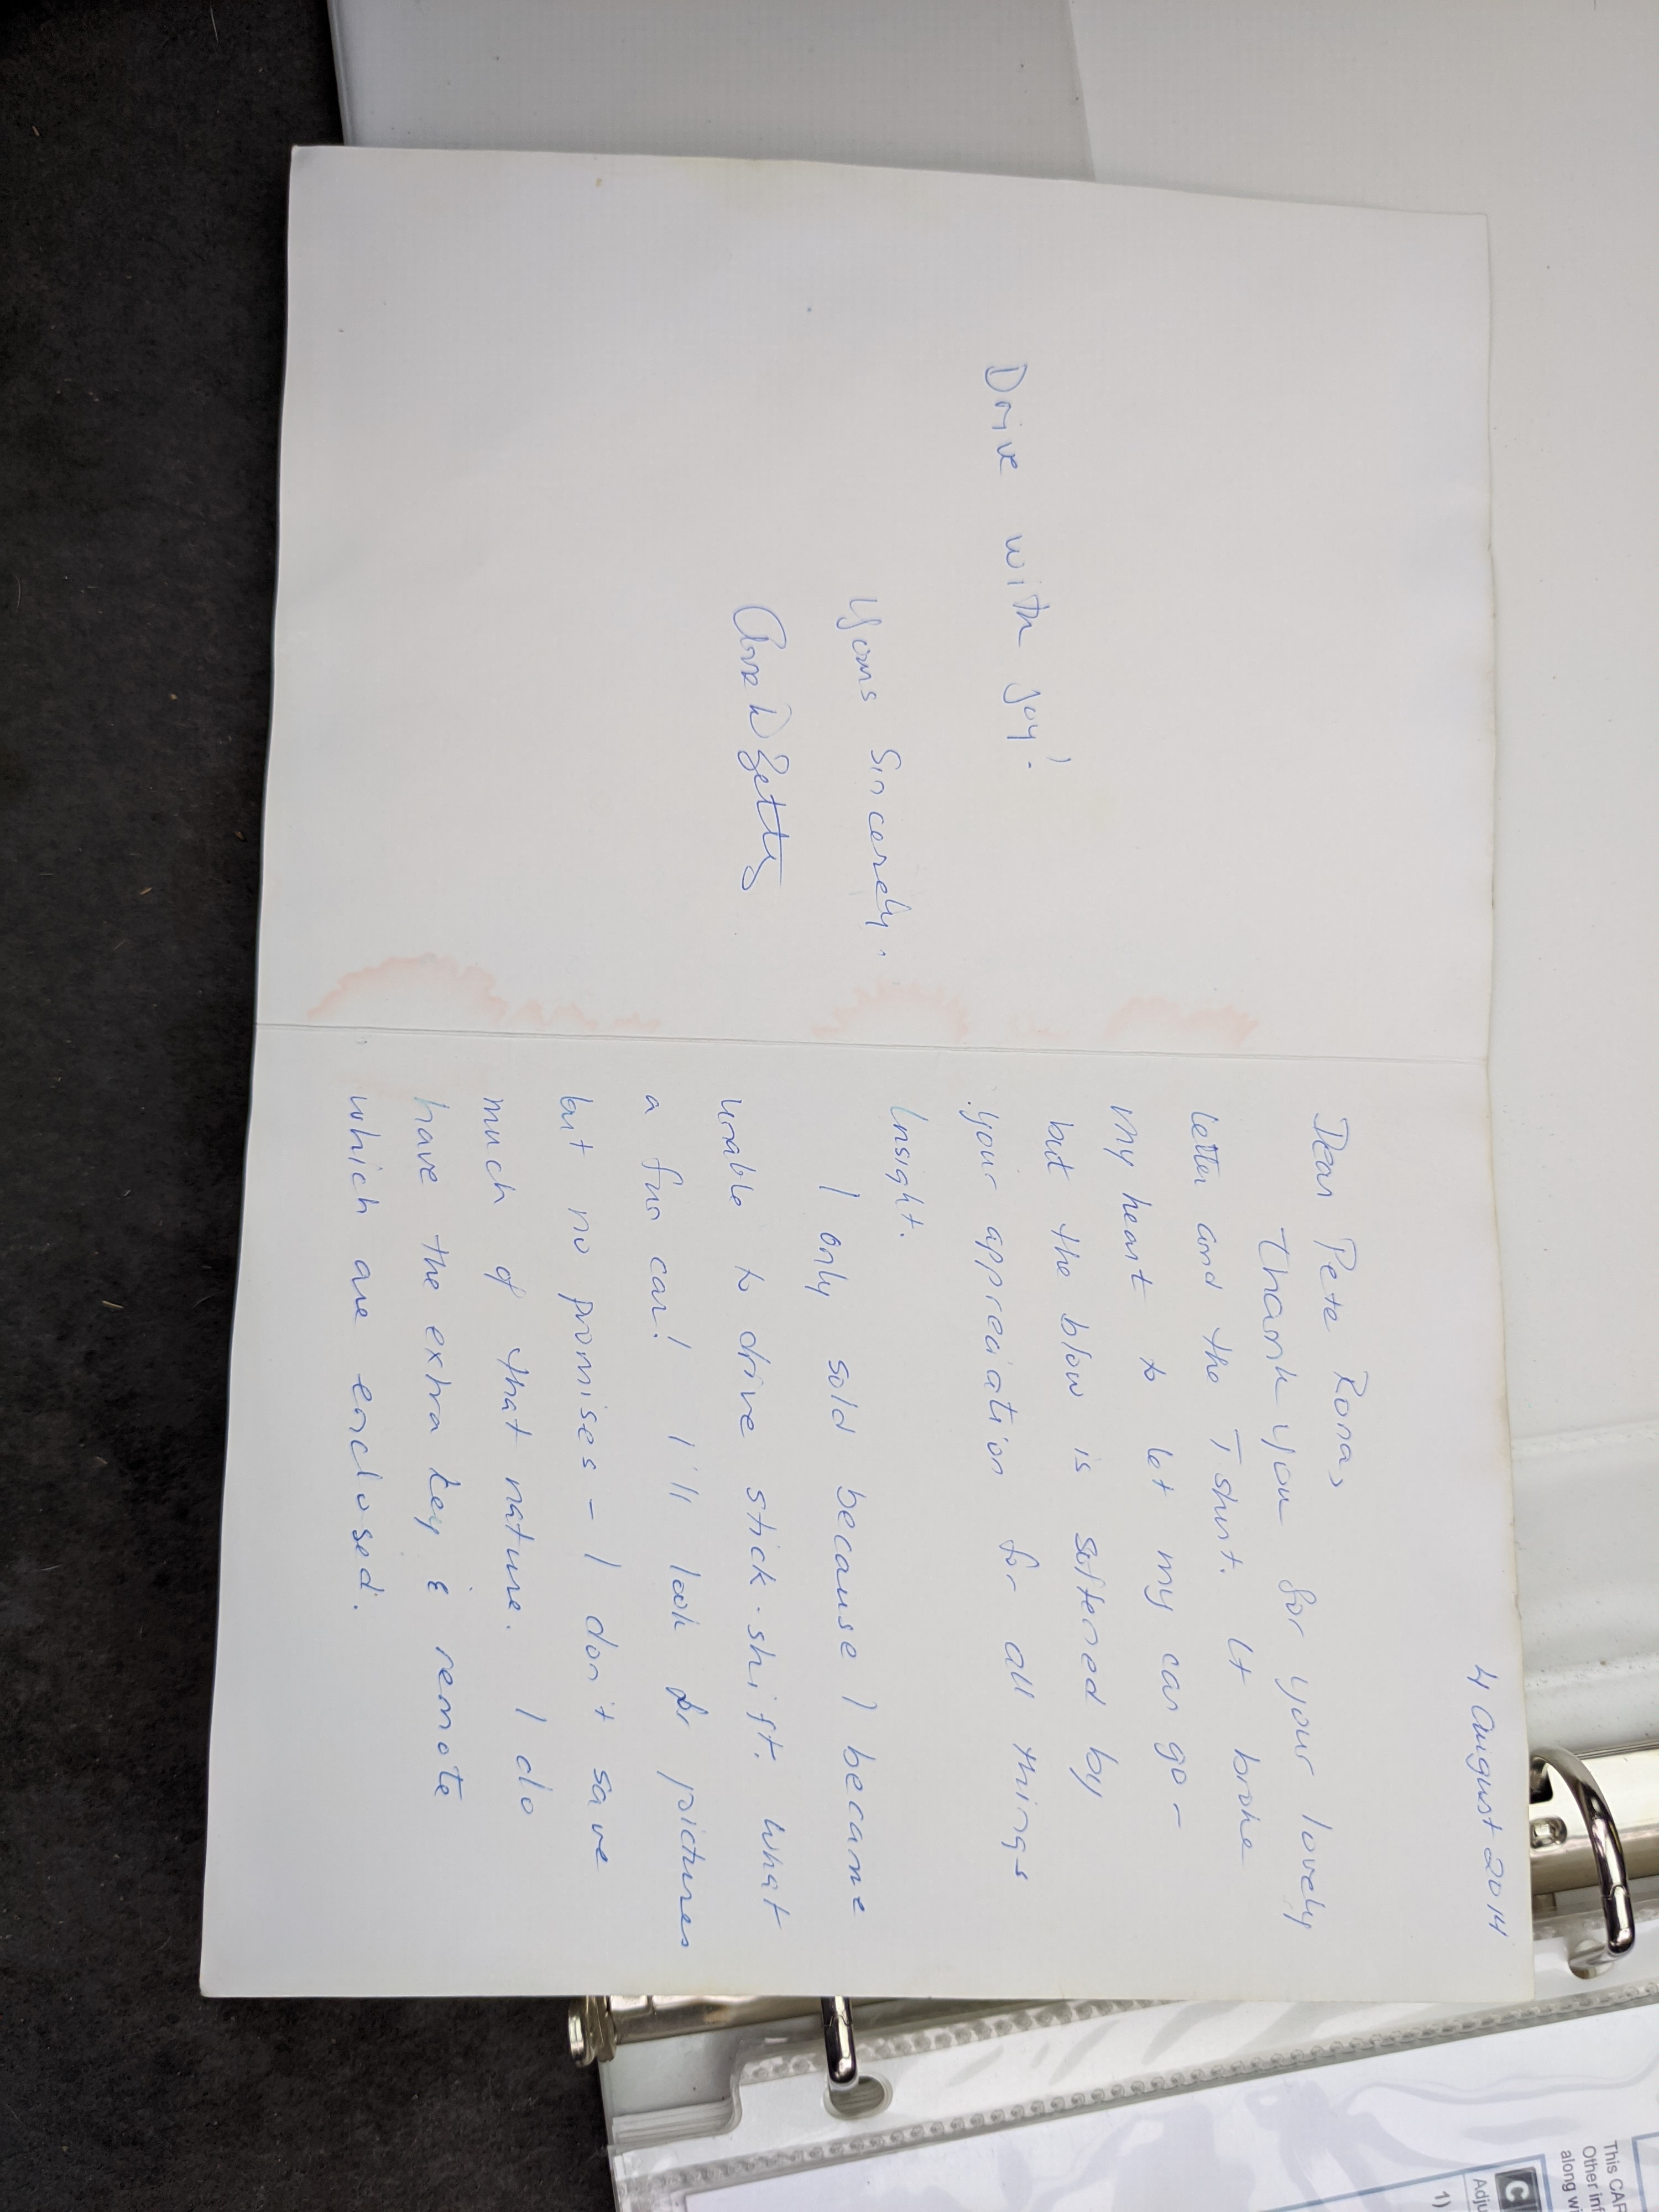 4 August 2014
Dear Pete Rona,
Thank you for your lovely
letter and the T shirt. It broke
my heart to let my car go –
but the blow is softened by
your appreciation for all things
Insight.
I only sold because I became
unable to drive stick-shift. What
a fun car! I'll look for pictures
but no promises – I don't save
much of that nature. I do
have the extra key & remote
which are enclosed.
Drive with joy!
Yours sincerely,
This CAR
Other inf
along wi
C
Adju
1)